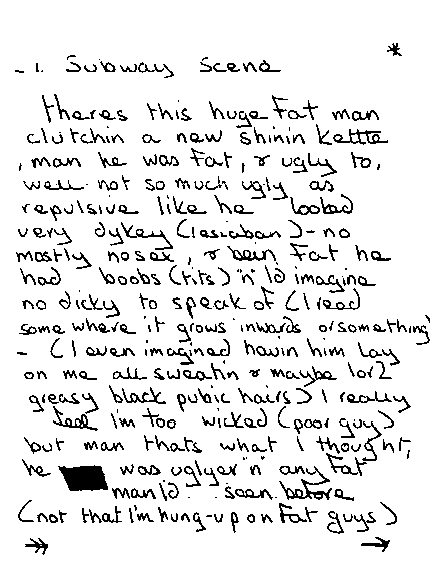 *
- 1. Subway Scene
theres this huge fat man
clutchin a new shinin kettle
, man he was fat, & ugly to,
well not so much ugly as
repulsive like he looked
very dykey (lesiaban) - no
mostly nosex, & bein fat he
had boobs (tits) 'n' I'd imagine
no dicky to speak of (I read
some where it grows inwards orsomething)
- (I even imagined havin him lay
on me all sweatin & maybe 1or2
greasy black pubic hairs) I really
feel I'm too wicked (poor guy)
but man thats what I thought,
he was uglyer 'n' any fat
man I'd seen before
(not that I'm hung-up on fat guys)